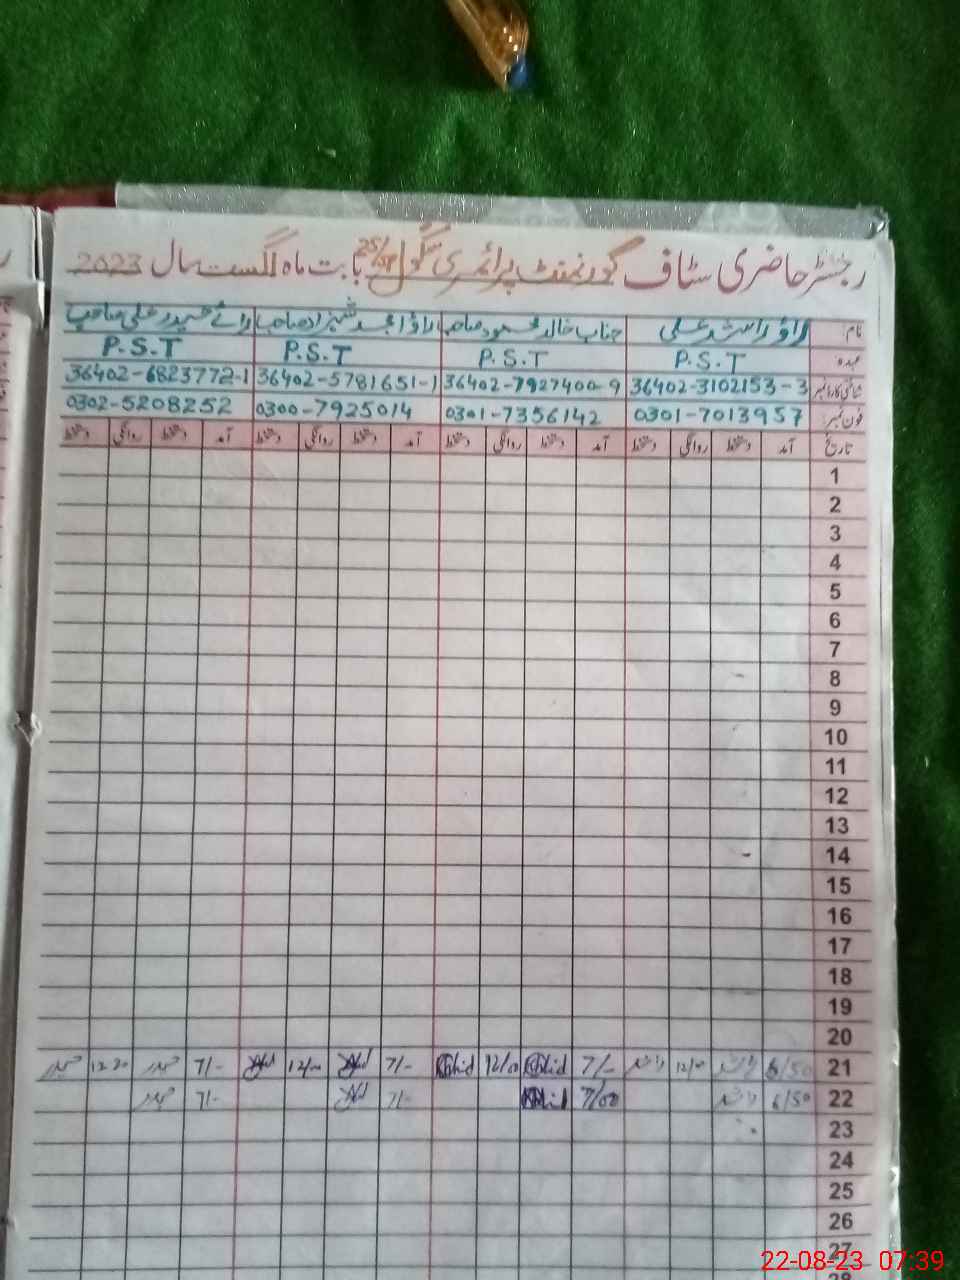 رجسٹر حاضری سٹاف گورنمنٹ پرائمری سکول 25/SP بابت ماہ اگست سال 2023
نام راؤ راشد علی جناب خالد محمود صاحب راؤ امجد شہزاد صاحب رائے حیدر علی صاحب
عہدہ P.S.T P.S.T P.S.T P.S.T
شناختی کارڈ نمبر 36402-3102153-3 36402-7927400-9 36402-5781651-1 36402-6823772-1
فون نمبر 0301-7013957 0301-7356142 0300-7925014 0302-5208252
تاریخ آمد دستخط روانگی دستخط آمد دستخط روانگی دستخط آمد دستخط روانگی دستخط آمد دستخط روانگی دستخط
1
2
3
4
5
6
7
8
9
10
11
12
13
14
15
16
17
18
19
20
21 6/50 راشد 12/00 راشد 7/- Khalid 12/00 Khalid 7/- 12/- 7/- حیدر 12-30 حیدر
22 6/50 راشد 7/00 Khalid 7/- 7/- حیدر
23
24
25
26
27
22-08-23 07:39